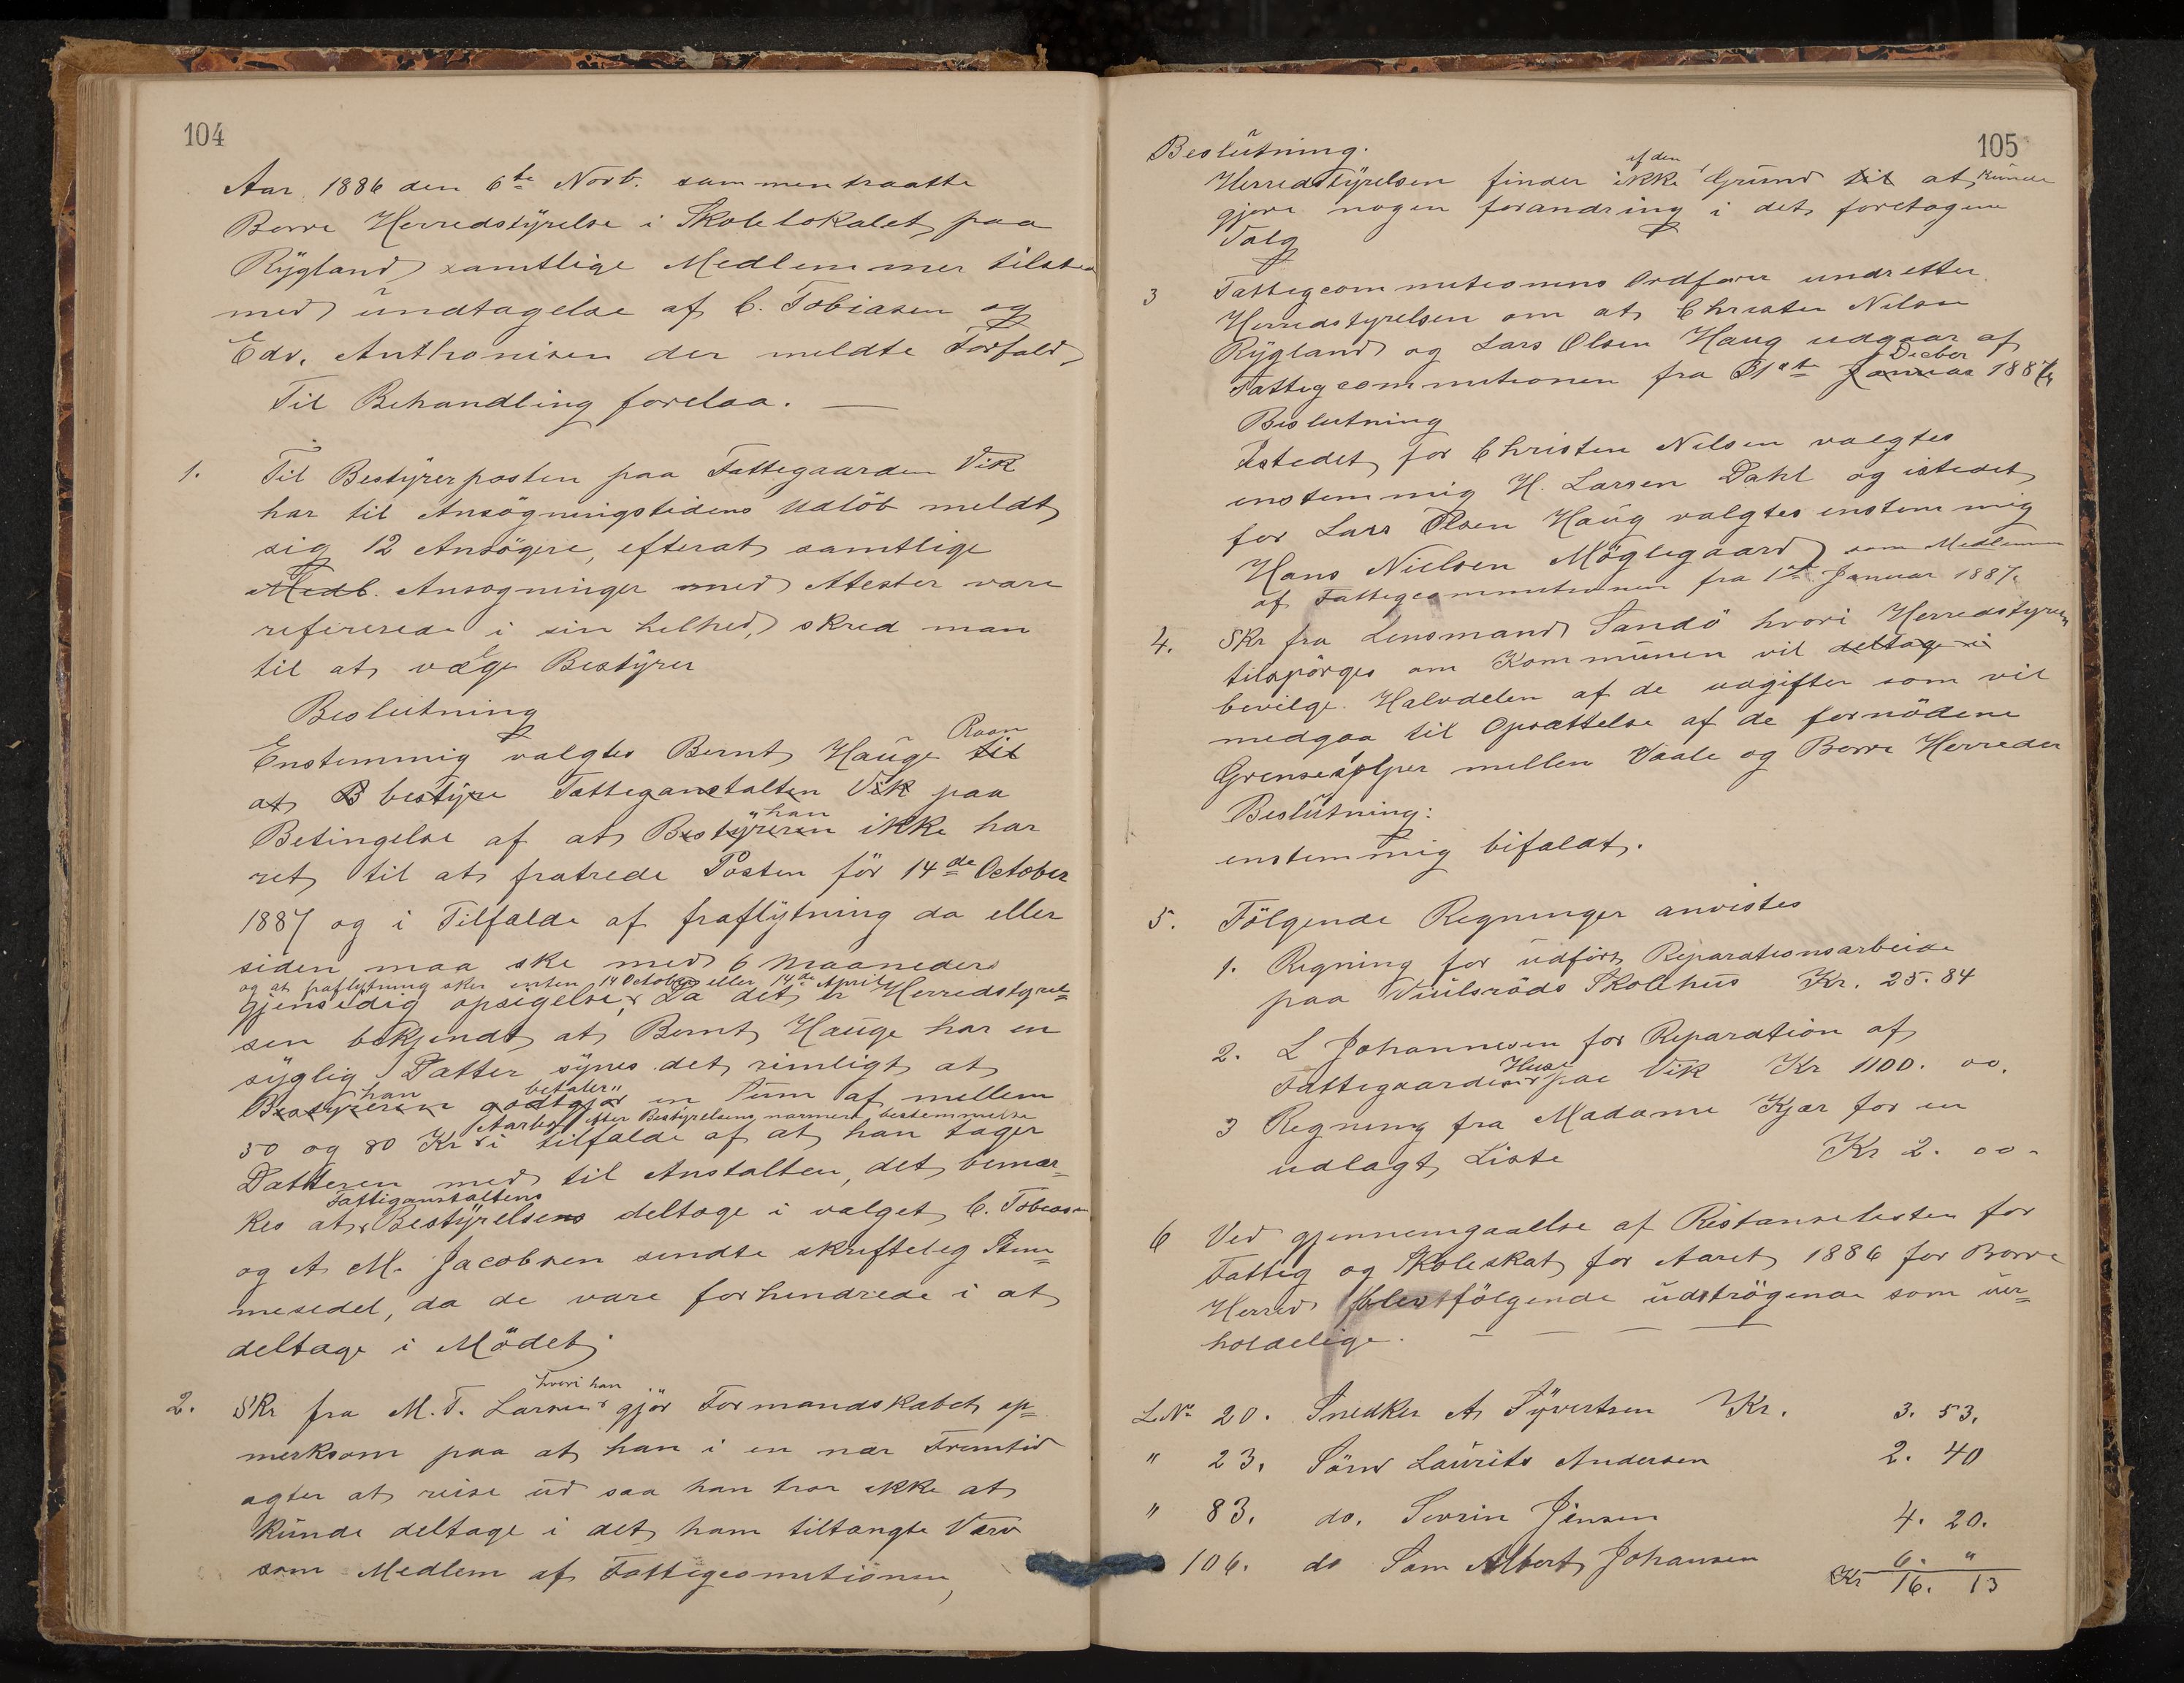 104
Aar 1886 den 6te Novb. sammentraatte
Borre Herredstyrelse i Skolelokalet paa
Rygland samtlige Medlemmer tilstede
med undtagelse af C. Tobiasen og
Edv. Anthonisen der meldte Forfald
Til Behandling forelaa. —
1. Til Bestyrerposten paa Fattegaarden Vik
har til Ansögningstidens Udlöb meldt
sig 12 Ansögere, efterat samtlige
Medl. Ansogninger med Attester vare
refererede i sin helhed, skred man
til at vælge Bestyrer
Beslutning
Raan
Enstemmig valgtes Bernt Hauge til
at B bestyre Fatteganstalten Vik paa
han
Betingelse af at Bestyreren ikke har
ret til at fratrede Posten för 14de October
1887 og i Tilfælde af fraflytning da eller
siden maa ske med 6 Maaneders
og at fraflytning sker enten 14 October eller 14de April
gjensidig opsigelse, Da det er Herredstyrel=
sen bekjendt at Bernt Hauge har en
syglig Datter synes det rimligt at
han betaler
Bestyreren godtgjør en Sum af mellem
Aarlig efter Bestyrelsens nærmere bestemmelse
50 og 80 Kr i tilfælde af at han tager
Datteren med til Anstalten, det bemær=
Fattiganstaltens
kes at Bestyrelsens deltoge i valget, C. Tobiasen
og A M. Jacobsen sendte skrifteleg Stem=
mesedel, da de vare forhendrede i at
deltage i Mödet.
hvori han
2. Skr fra M. T. Larsen gjör Formandskabet op=
merksom paa at han i en nær Fremtid
agter at reise ud saa han tror ikke at
kunde deltage i det ham tiltængte Værv
som Medlem af Fattigcomitionen,
105
Beslutning.
af den
Herredstyrelsen finder ikke Grund til at kunde
gjøre nogen forandring i det foretagene
Valg
3 Fattegcommitionens Ordfører undretter
Herredstyrelsen om at Christen Nilsen
Rygland og Lars Olsen Haug udgaar af
Decber
Fattegcommitionen fra 31te Januar 1886
Beslutning
Istedet for Christen Nilsen valgtes
enstemmig H. Larsen Dahl og istedet
for Lars Olsen Haug valgtes enstemmig
Hans Nielsen Möglegaard som Medlemmer
af Fattegcommitionen fra 1ste Januar 1887.
4. Skr fra Lensmand Sandö hvori Herredstyren
tilspörges om Kommunen vil deltage i
bevilge Halvdelen af de udgifter som vil
medgaa til Opsættelse af de fornödene
Grensestolper mellem Vaale og Borre Herreder
Beslutning:
enstemmig bifaldt.
5. Fölgende Regninger anvistes
1. Regning for udfört Reparationsarbeide
paa Viulsröds Skolehus Kr. 25.84
2. L Johannesen for Reparation af
Huse
Fattegaardens paa Vik Kr 1100. 00.
3 Regning fra Madame Kjær for en
udlagt Liste Kr 2. 00.
6 Ved gjennemgaaelse af Ristanselesten for
Fatteg og Skoleskat for Aaret 1886 for Borre
Herred blev fölgende udströgende som uer=
holdelige. — — — —
L.No 20. Snedker A Syvertsen Kr. 3. 53.
" 23. Sömd Laurits Andersen 2. 40
" 83. do. Sevrin Jensen 4. 20.
" 106. do Sam Albert Johansen 6. "
Kr 16. 13